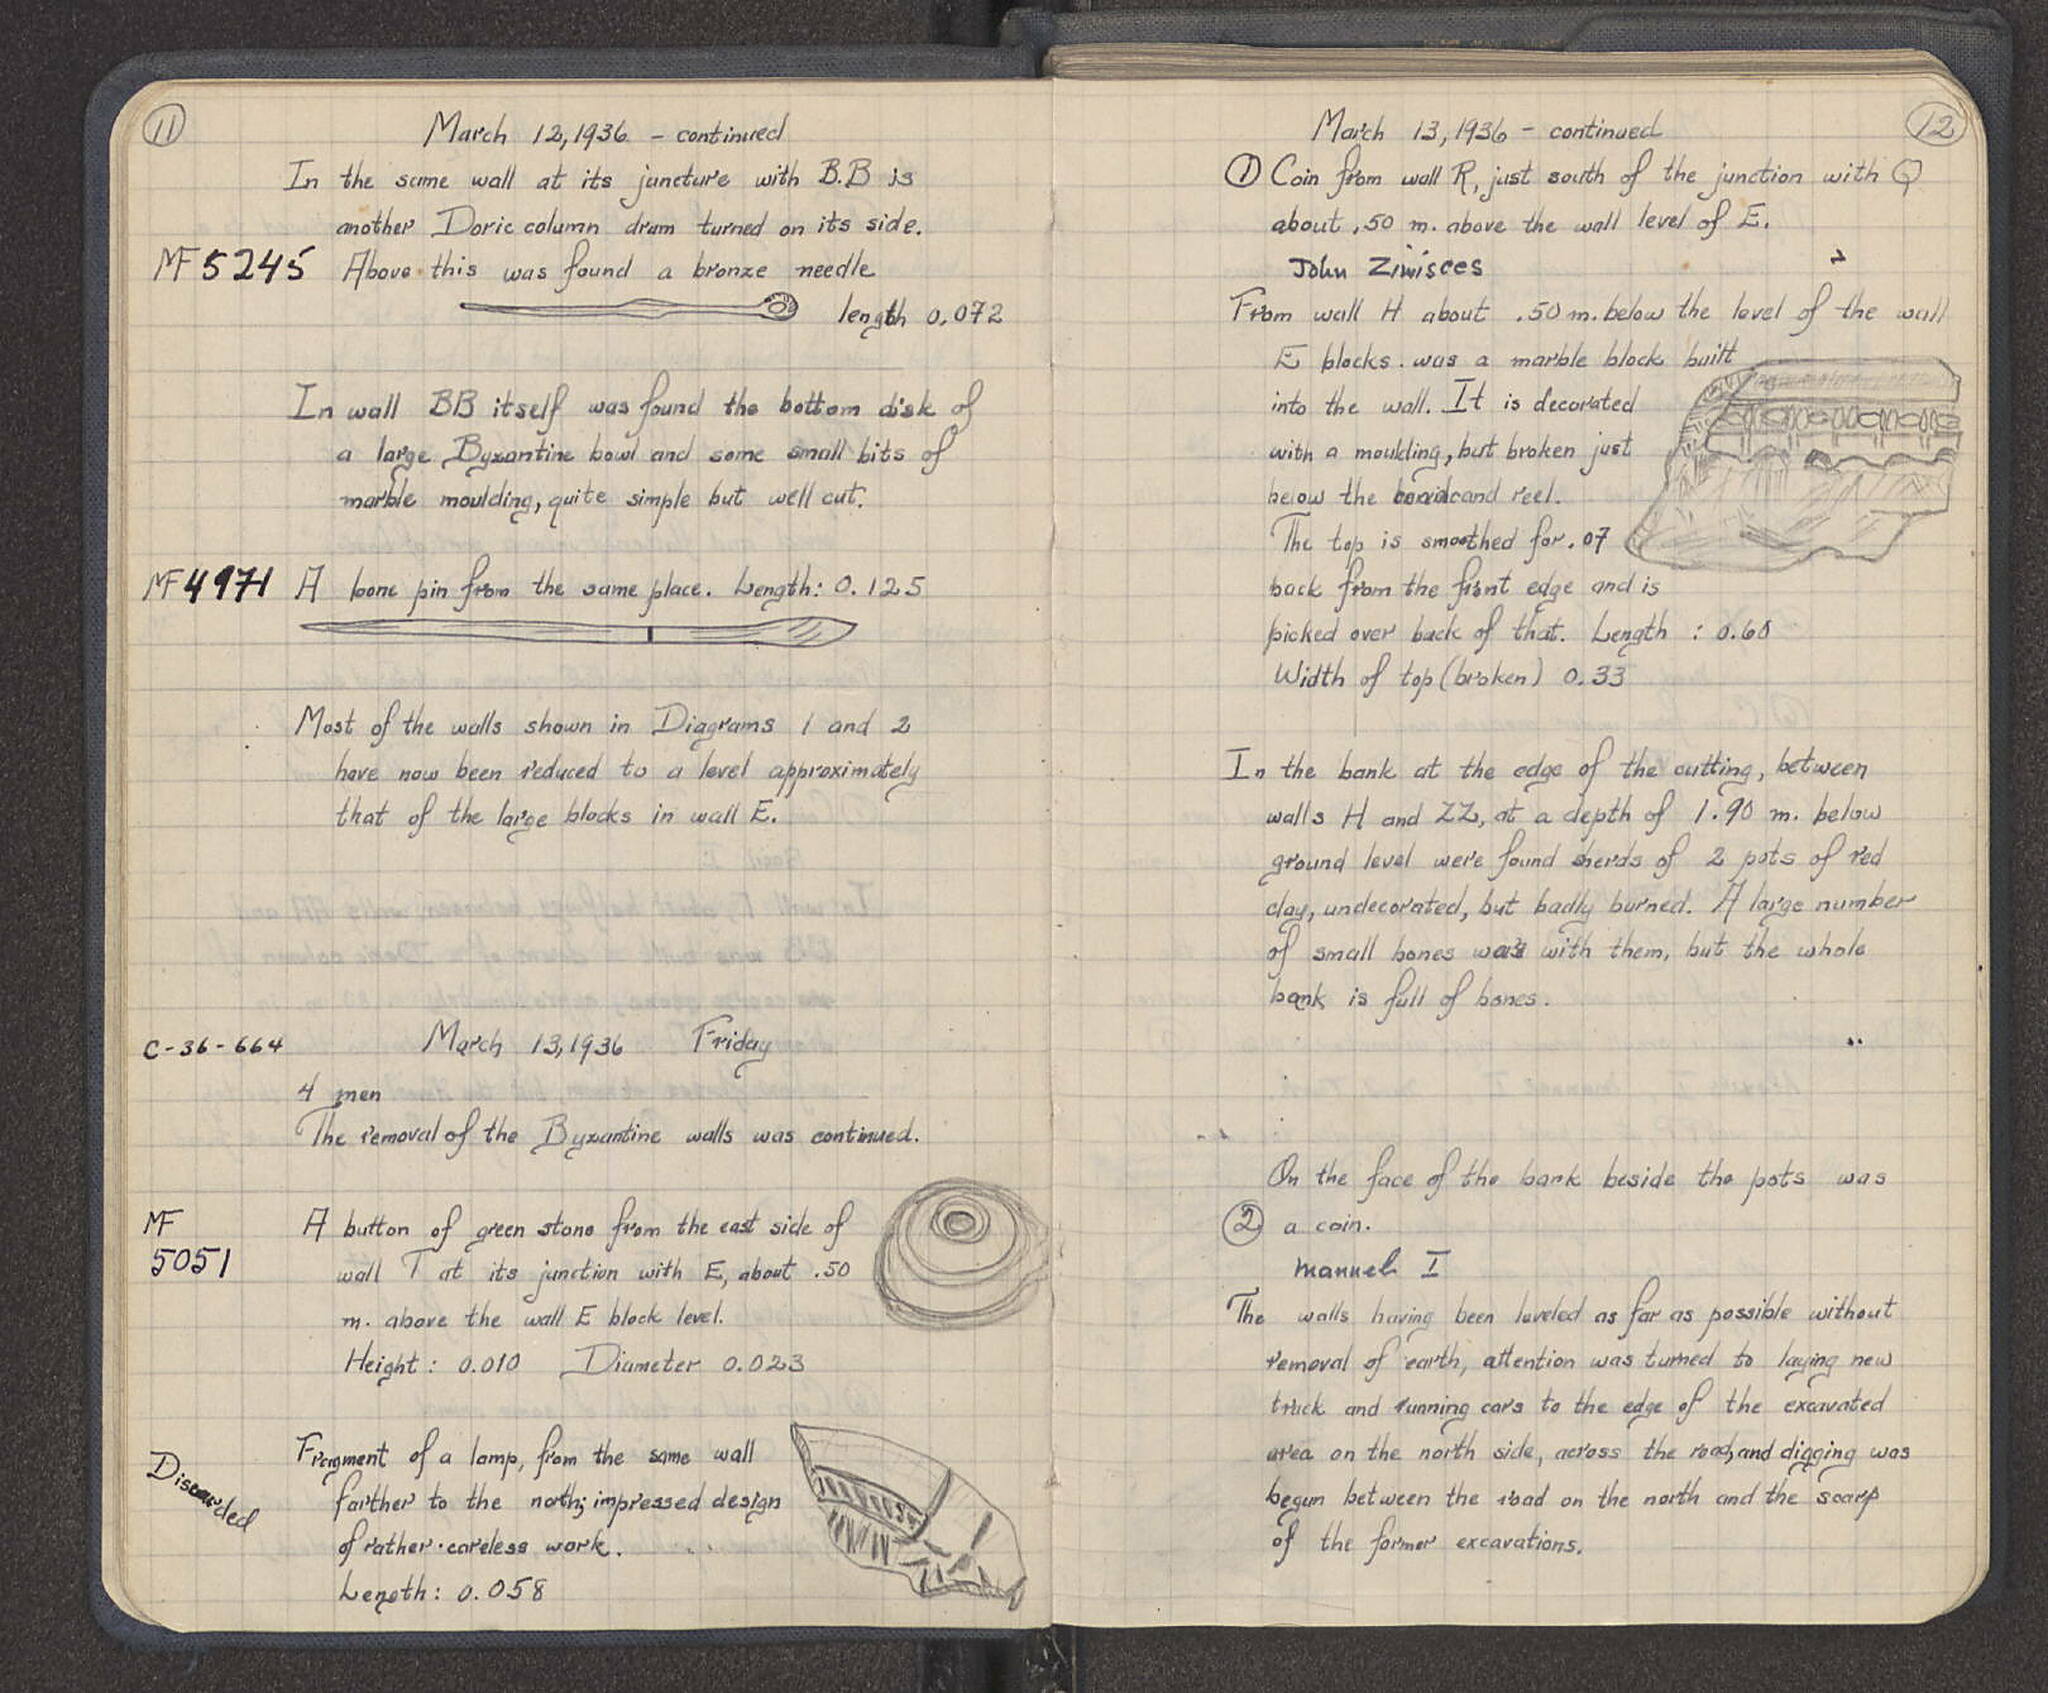 11
March 12, 1936 - continued
In the same wall at its juncture with B.B is
another Doric column drum turned on its side.
MF 5245 Above this was found a bronze needle
length 0.072
In wall BB itself was found the bottom disk of
a large Byzantine bowl and some small bits of
marble moulding, quite simple but well cut.
MF 4971 A bone pin from the same place. Length: 0.125
Most of the walls shown in Diagrams 1 and 2
have now been reduced to a level approximately
that of the large blocks in wall E.
C-36-664 March 13, 1936 Friday
4 men
The removal of the Byzantine walls was continued.
MF
5051
A button of green stone from the east side of
wall T at its junction with E, about .50
m. above the wall E block level.
Height: 0.010 Diameter 0.023
Discarded
Fragment of a lamp, from the same wall
farther to the north; impressed design
of rather careless work.
Length: 0.058
12
March 13, 1936 - continued
① Coin from wall R, just south of the junction with Q
about .50 m. above the wall level of E.
John Zimisces
From wall H about .50 m. below the level of the wall
E blocks was a marble block built
into the wall. It is decorated
with a moulding, but broken just
below the and reel.
The top is smoothed for .07
back from the front edge and is
picked over back of that. Length : 0.60
Width of top (broken) 0.33
In the bank at the edge of the cutting, between
walls H and ZZ, at a depth of 1.90 m. below
ground level were found sherds of 2 pots of red
clay, undecorated, but badly burned. A large number
of small bones was with them, but the whole
bank is full of bones.
On the face of the bank beside the pots was
② a coin.
Manuel I
The walls having been leveled as far as possible without
removal of earth, attention was turned to laying new
track and running cars to the edge of the excavated
area on the north side, across the road, and digging was
begun between the road on the north and the scarp
of the former excavations.